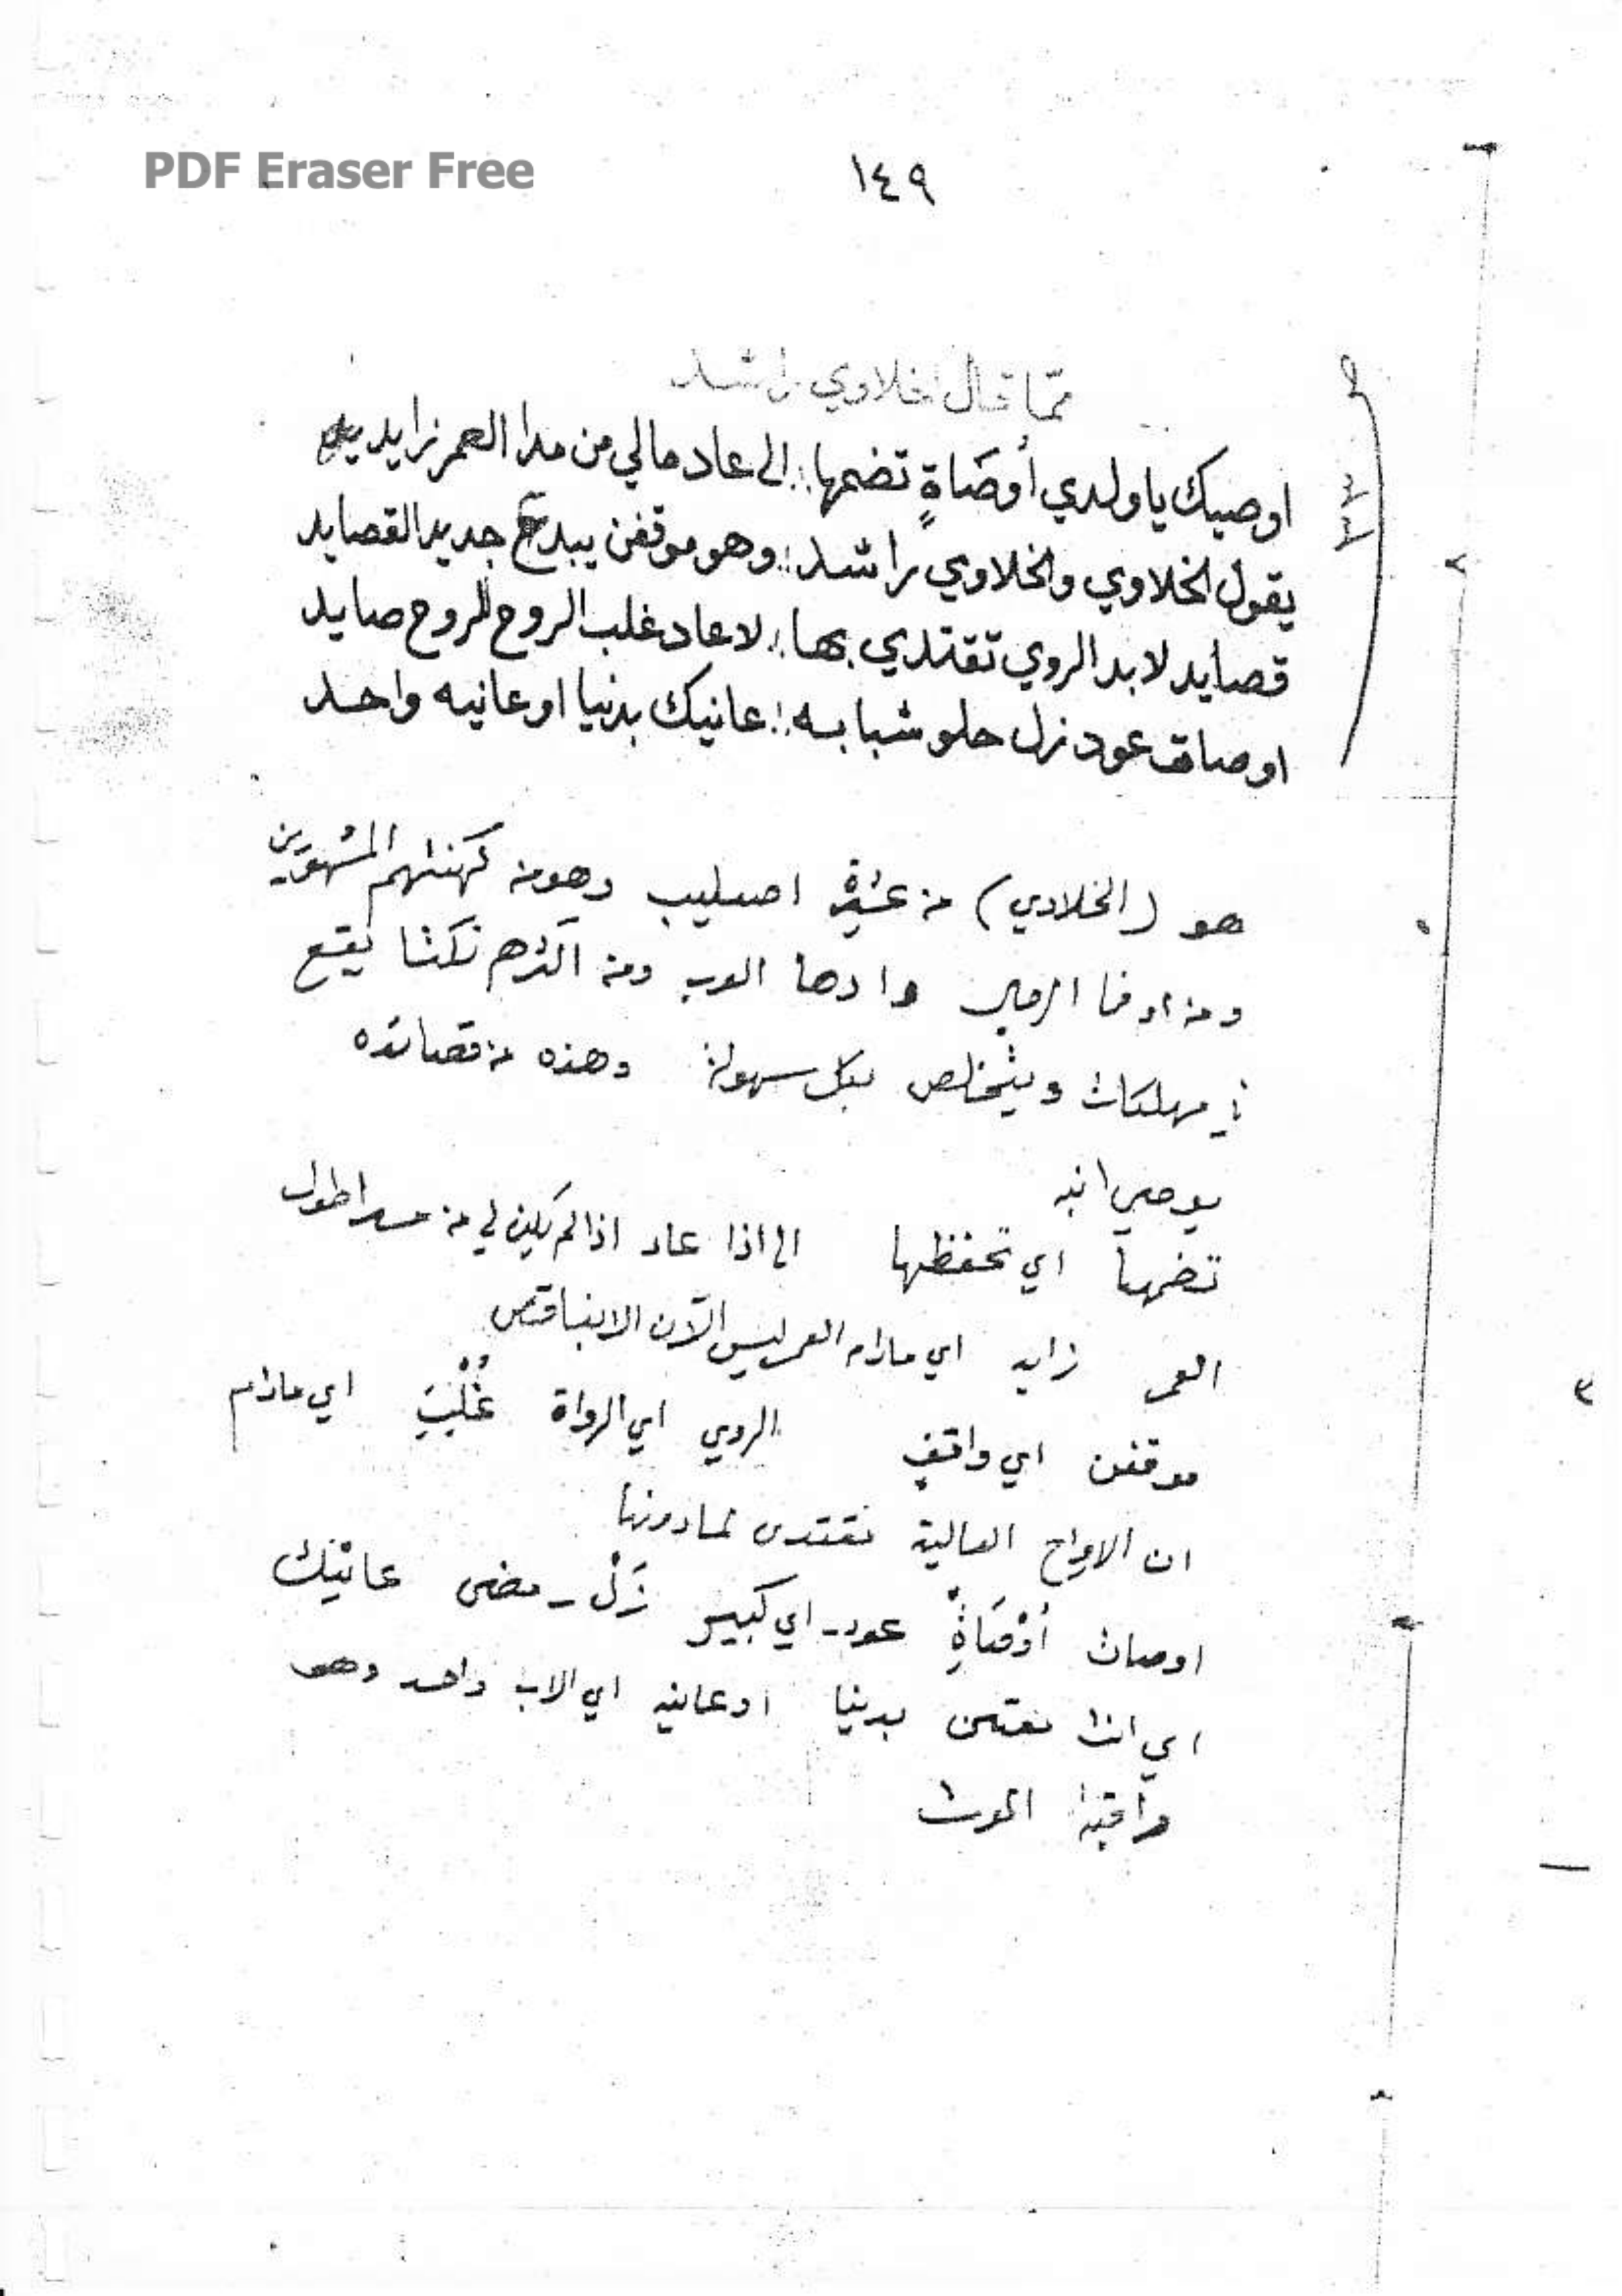 PDF Eraser Free
١٤٩
مما قال الخلاوي راشد
اوصيك يا ولدي أوصَاةٍ تضمها : الى عاد مالي من مدا العمر زايد
يقول الخلاوي والخلاوي راشد : وهو موقفن يبدع جديد القصايد
قصايد لابد الروي تقتدي بها : لا عاد غلب الروح للروح صايد
اوصات عود زل حلو شبابه : عانيك بدنيا اوعانيه واحد
هو (الخلاوي) من عشيرة اصليب وهو من كهنتهم المشهورين
ومن اوفا الرجال وادها العرب ومن اكثرهم نكتا يقع
في مهلكات ويتخلص بكل سهولة وهذه من قصائده
يوصي ابنه
تضمها اي تحفظها الى اذا عاد اذا لم يكن لي من مدا طول
العمر زايد اي مادام العمر ليس الآن الا بنقاقص
موقفن اي واقف الروي اي الرواة غُلْبَ اي مادام
ان الارواح العالية تقتدى لمادونها
اوصات أوْصَاةِ عود - اي كبير زَلْ - مضى عانيْك
اي انت معتني بدنيا اوعانيه اي الاب واحد وهو
مراقبة الموت